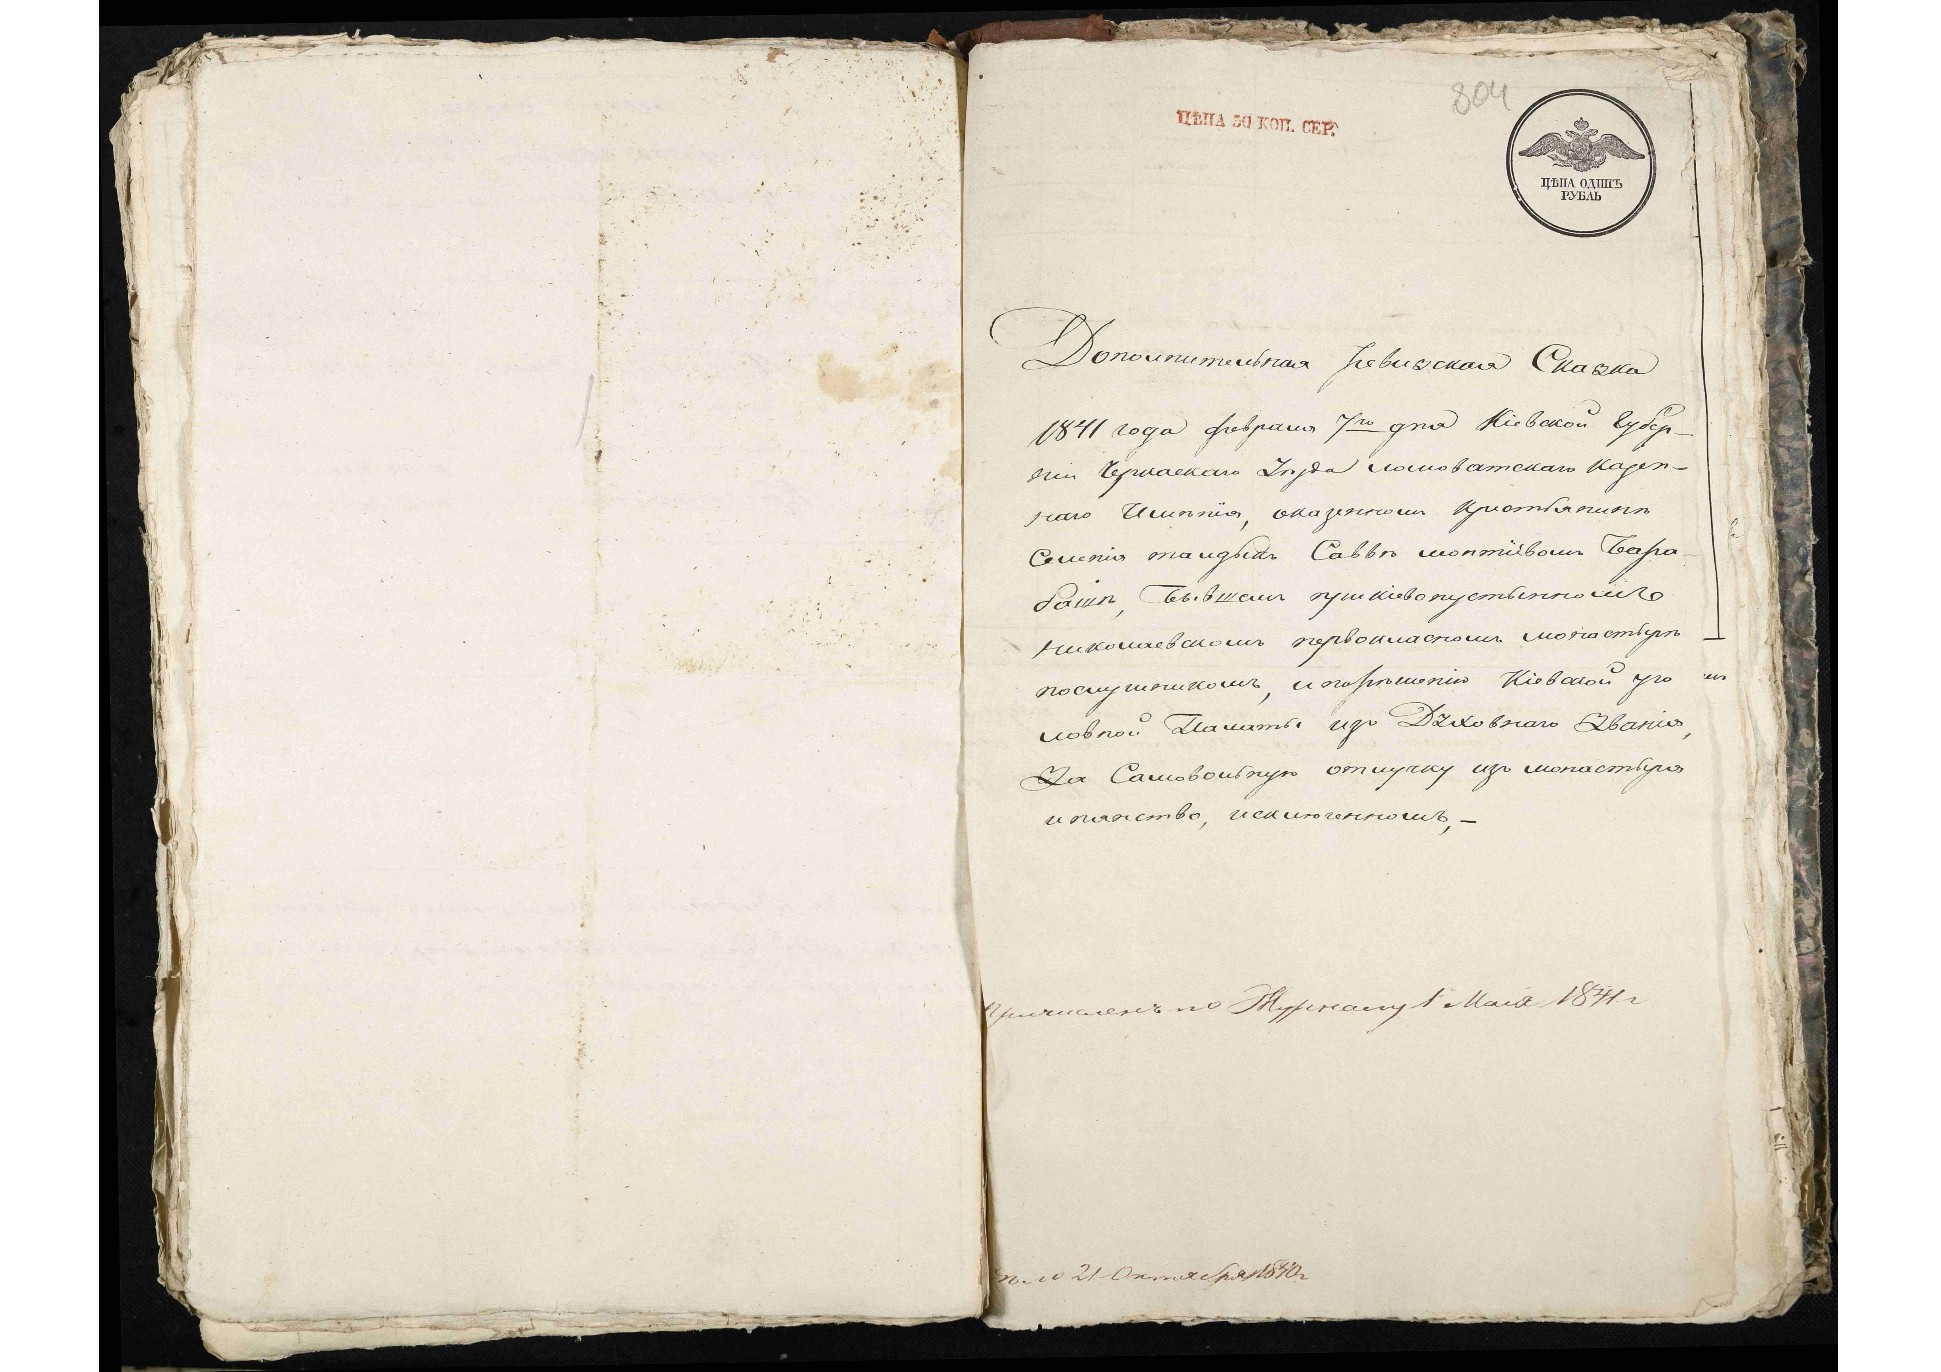 804
ЦѢНА 30 КОП. СЕР.
ЦѢНА ОДИНЪ
РУБЛЬ
Дополнительная Ревизская Сказка
1841 года февраля 7го дня Кіевской Губер-
ніи Черкаскаго Уезда Ломоватскаго Казен-
наго Имѣнія, оказенномъ Крестьянинѣ
Селенія Талдыкъ Саввѣ Барa-
башѣ, бывшемъ прикіевопустынномъ
Николаевскомъ первокласномъ монастырѣ
послушникомъ, и порѣшенію Кіевской уго
ловной Палаты изъ Духовнаго Званія,
За Самовольную отлучку изъ монастыря
и пянство, исключенномъ,-
Причисленъ по Журналу 1 Маія 1841 г
21 Октября 1840 г